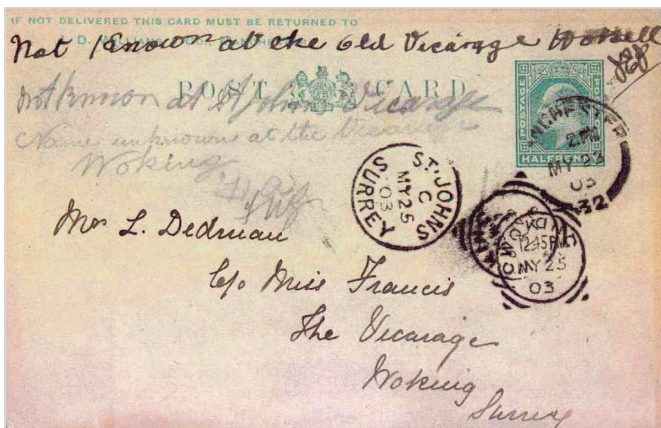 IF NOT DELIVERED THIS CARD MUST BE RETURNED TO
Not Known at the Old Vicarage Horsell
POST CARD
Not known at St Johns Vicarage
Name unknown at the Vicarage
Woking
POSTAGE
HALFPENNY
2 PM
MY 23
03
ST. JOHNS
C
MY 25
03
SURREY
WOKING
12.15 PM
MY 25
03
Mrs L. Dedman
c/o Miss Francis
The Vicarage
Woking
Surrey